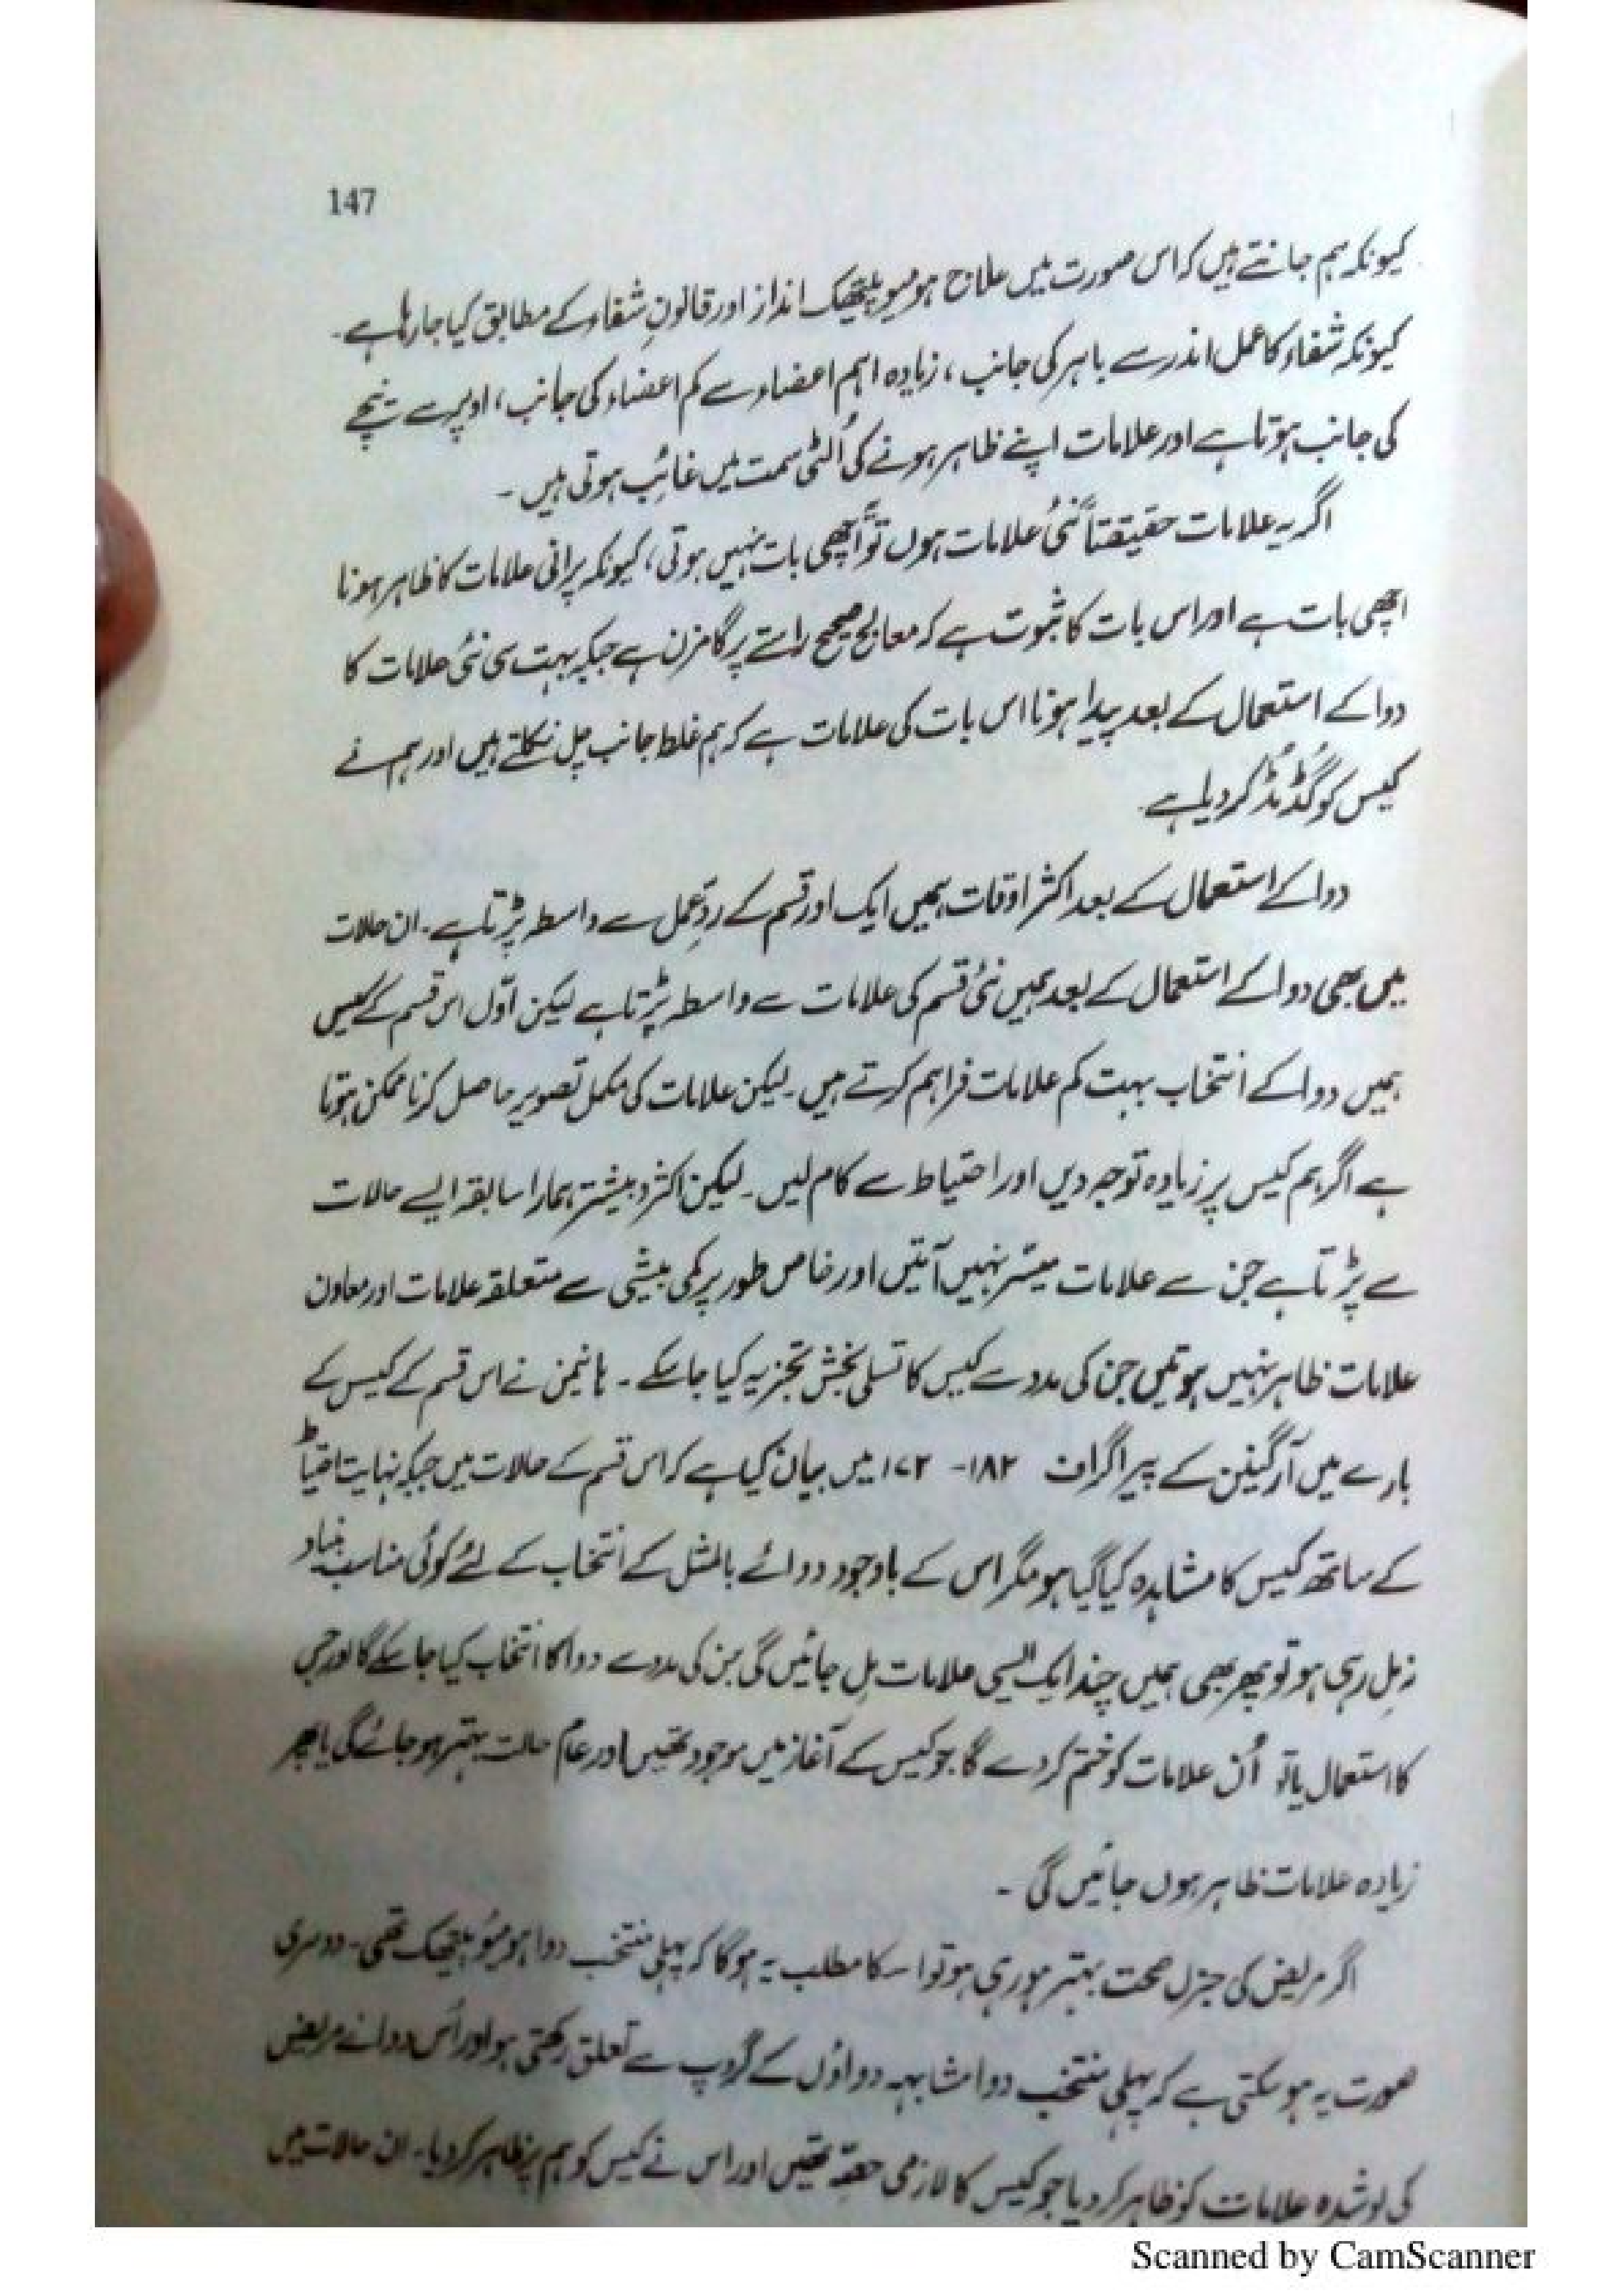 147
کیونکہ ہم جانتے ہیں کہ اس صورت میں علاج ہومیوپیتھیک انداز اور قانونِ شفاء کے مطابق کیا جا رہا ہے۔
کیونکہ شفاء کا عمل اندر سے باہر کی جانب، زیادہ اہم اعضاء سے کم اعضاء کی جانب، اوپر سے نیچے
کی جانب ہوتا ہے اور علامات اپنے ظاہر ہونے کی اُلٹی سمت میں غائب ہوتی ہیں۔
اگر یہ علامات حقیقتاً نئی علامات ہوں تو اچھی بات نہیں ہوتی، کیونکہ پرانی علامات کا ظاہر ہونا
اچھی بات ہے اور اس بات کا ثبوت ہے کہ معالج صحیح راستے پر گامزن ہے جبکہ بہت سی نئی علامات کا
دوا کے استعمال کے بعد پیدا ہونا اس بات کی علامات ہے کہ ہم غلط جانب چل نکلتے ہیں اور ہم نے
کیس کو گڈمڈ کر دیا ہے
دوا کے استعمال کے بعد اکثر اوقات ہمیں ایک اور قسم کے ردِعمل سے واسطہ پڑتا ہے۔ ان حالات
میں بھی دوا کے استعمال کے بعد ہمیں نئی قسم کی علامات سے واسطہ پڑتا ہے لیکن اوّل اس قسم کے کیس
ہمیں دوا کے انتخاب بہت کم علامات فراہم کرتے ہیں۔ لیکن علامات کی مکمل تصویر حاصل کرنا ممکن ہوتا
ہے اگر ہم کیس پر زیادہ توجہ دیں اور احتیاط سے کام لیں۔ لیکن اکثر و بیشتر ہمارا سابقہ ایسے حالات
سے پڑتا ہے جن سے علامات میسّر نہیں آتیں اور خاص طور پر کمی بیشی سے متعلقہ علامات اور معاون
علامات ظاہر نہیں ہوتیں جن کی مدد سے کیس کا تسلی بخش تجزیہ کیا جا سکے۔ ہانیمن نے اس قسم کے کیس کے
بارے میں آرگینن کے پیراگراف ۱۸۲-۱۷۲ میں بیان کیا ہے کہ اس قسم کے حالات میں جبکہ نہایت احتیاط
کے ساتھ کیس کا مشاہدہ کیا گیا ہو مگر اس کے باوجود دوائے بالمثل کے انتخاب کے لئے کوئی مناسب بنیاد
نہ مِل رہی ہو تو پھر بھی ہمیں چند ایک ایسی علامات مِل جائیں گی جن کی مدد سے دوا کا انتخاب کیا جا سکے گا اور جس
کا استعمال یا تو اُن علامات کو ختم کر دے گا جو کیس کے آغاز میں موجود تھیں اور عام حالت بہتر ہو جائے گی یا پھر
زیادہ علامات ظاہر ہوں جائیں گی۔
اگر مریض کی جنرل صحت بہتر ہو رہی ہو تو اس کا مطلب یہ ہوگا کہ پہلی منتخب دوا ہومیوپیتھیک تھی۔ دوسری
صورت یہ ہو سکتی ہے کہ پہلی منتخب دوا مشابہہ دواؤں کے گروپ سے تعلق رکھتی ہو اور اُس دوا نے مریض
کی پوشیدہ علامات کو ظاہر کر دیا جو کیس کا لازمی حصّہ تھیں اور اس نے کیس کو ہم پر ظاہر کر دیا۔ ان حالات میں
Scanned by CamScanner